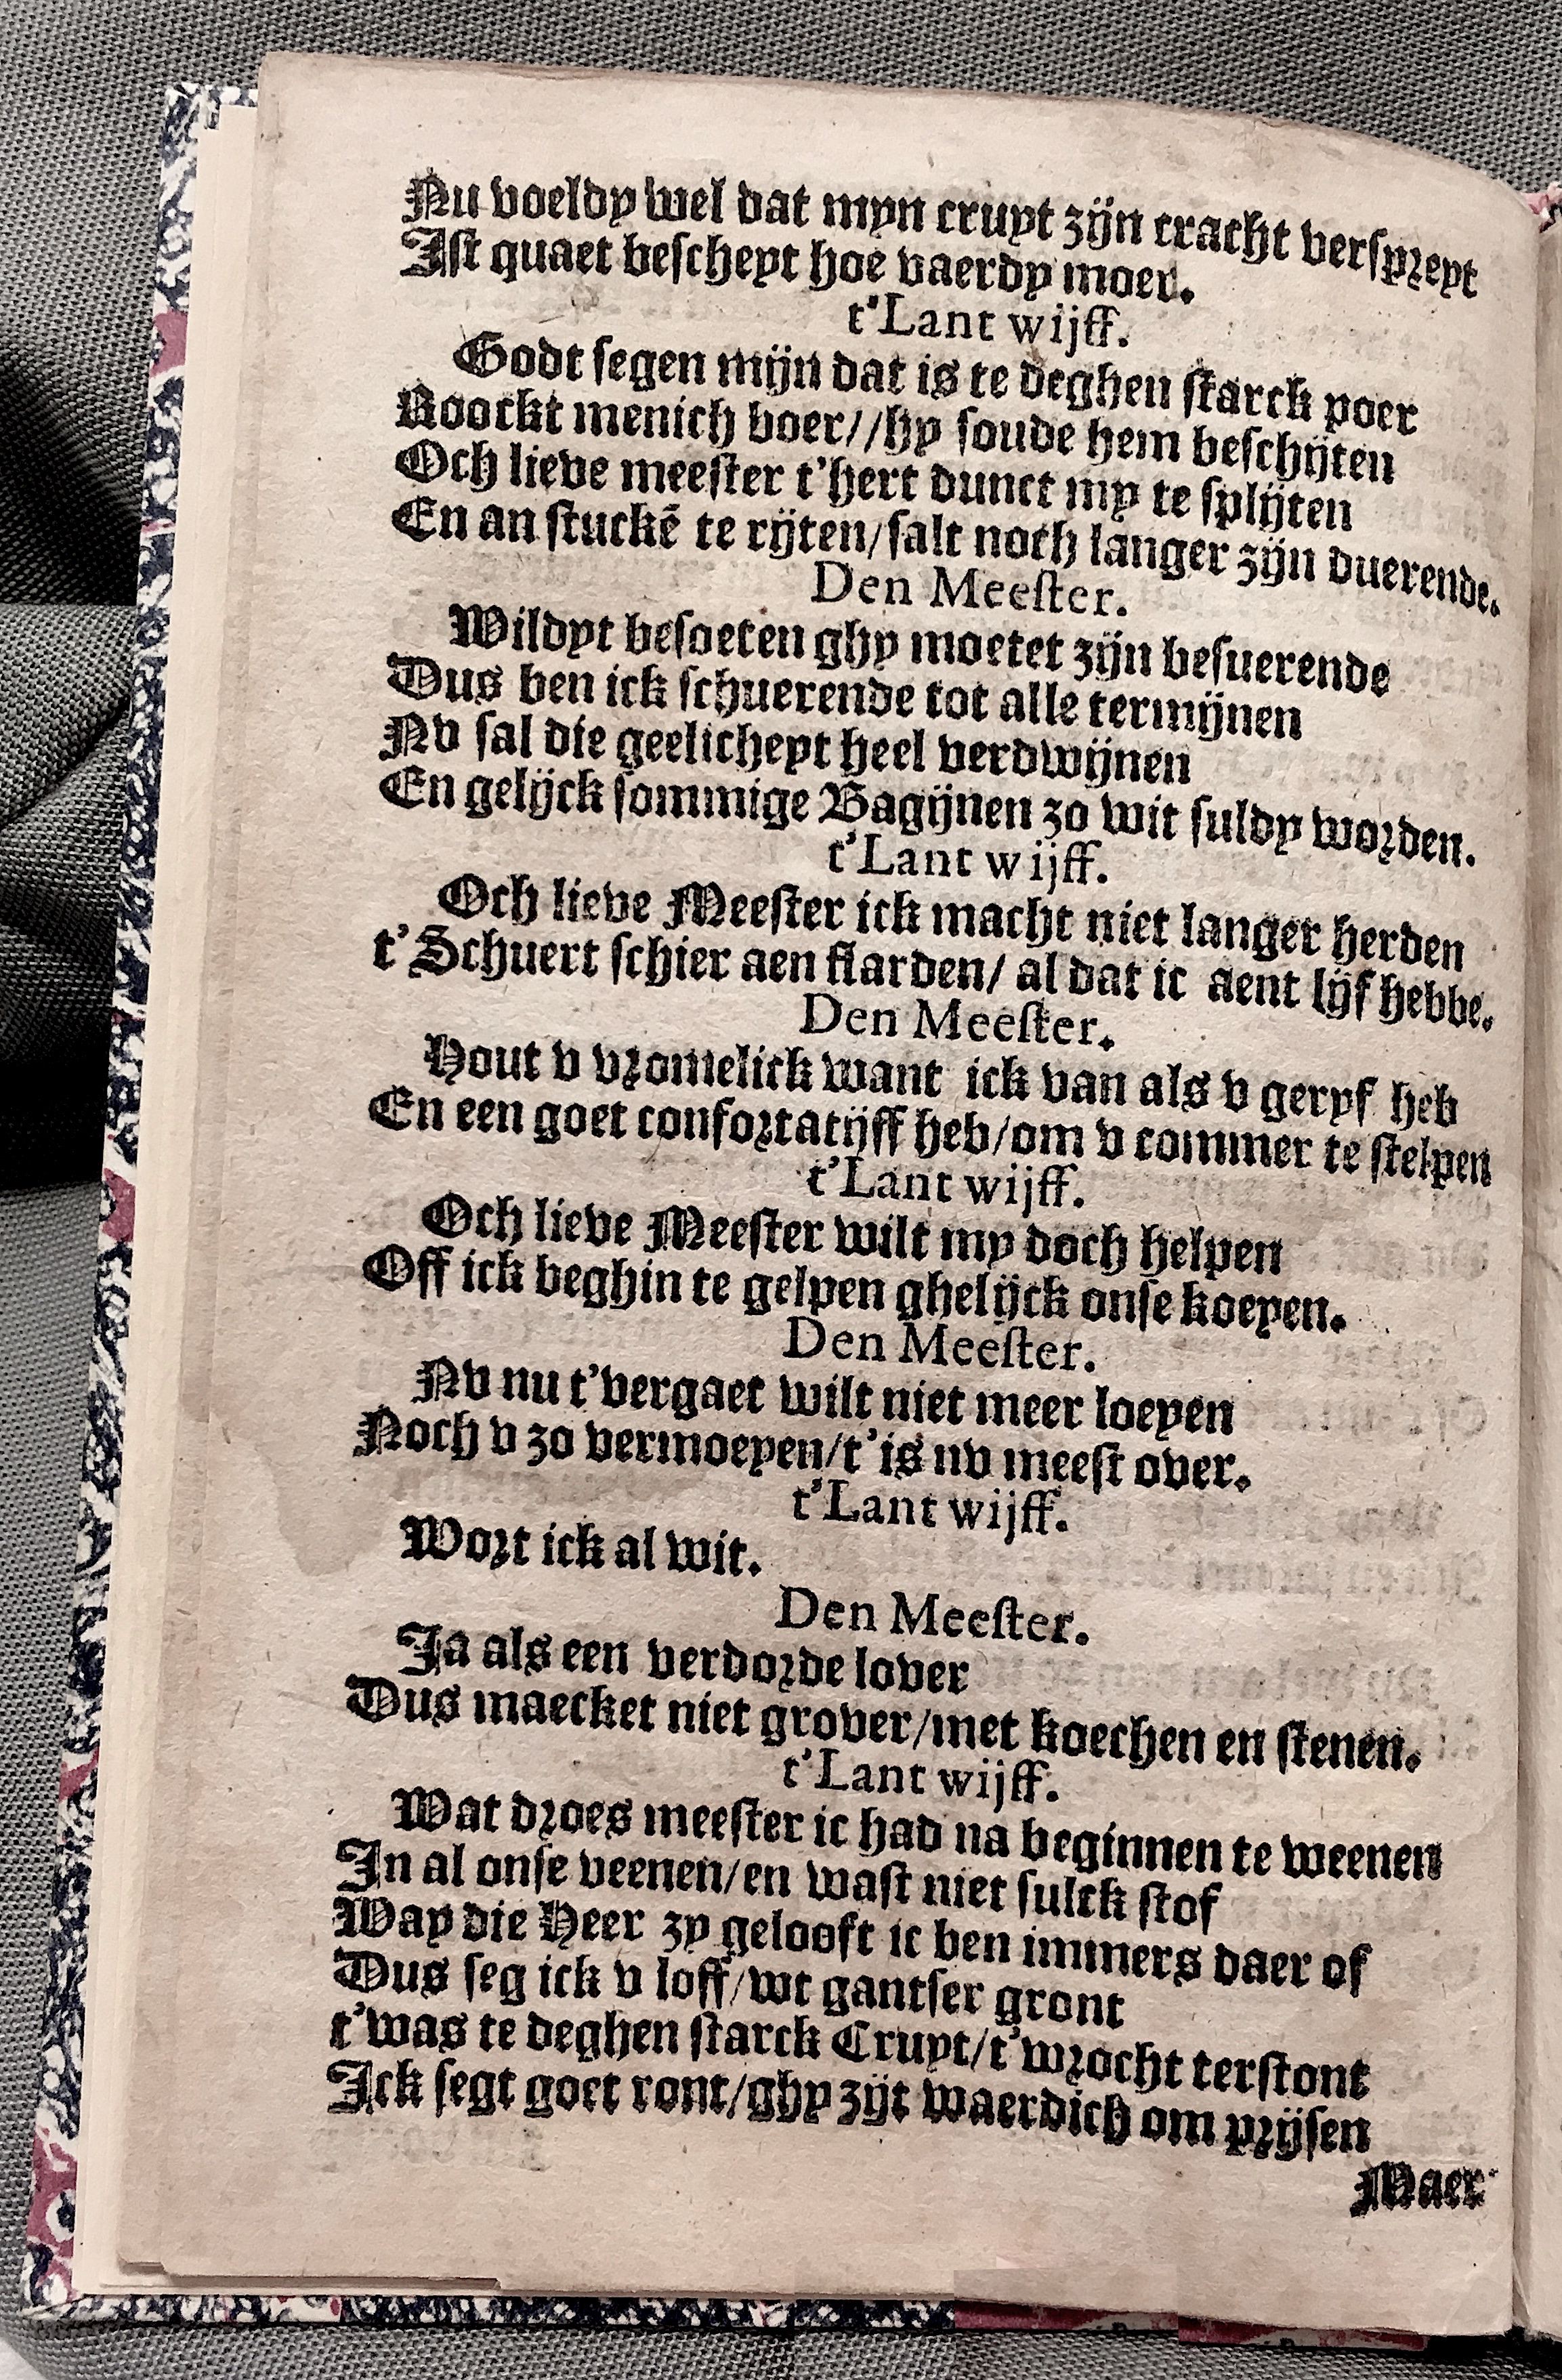 Nu voeldy wel dat myn cruyt zijn cracht verspreyt
Ist quaet bescheyt hoe vaerdy moer.
t'Lant wijff.
Godt segen mijn dat is te deghen starck poer
Roockt menich boer//hy soude hem beschijten
Och lieve meester t'hert dunct my te splijten
En an stuckē te rijten/salt noch langer zijn duerende.
Den Meester.
Wildyt besoeten ghy moetet zijn besuerende
Dus ben ick schuerende tot alle termijnen
Nv sal die geelicheyt heel verdwijnen
En gelijck sommige Bagijnen zo wit suldy worden.
t'Lant wijff.
Och lieve Meester ick macht niet langer herden
t'Schuert schier aen flarden/ al dat ic aent lijf hebbe.
Den Meester.
Hout v vromelick want ick van als v geryf heb
En een goet confortatijff heb/om v commer te stelpen
t'Lant wijff.
Och lieve Meester wilt my doch helpen
Off ick beghin te gelpen ghelijck onse koeyen.
Den Meester.
Nv nu t'vergaet wilt niet meer loeyen
Noch v zo vermoeyen/t'is nv meest over.
t'Lant wijff.
Wort ick al wit.
Den Meester.
Ja als een verdorde lover
Dus maecket niet grover/met koechen en stenen.
t'Lant wijff.
Wat droes meester ic had na beginnen te weenen
In al onse veenen/en wast niet sulck stof
Way die Heer zy gelooft ic ben immers daer of
Dus seg ick v loff/wt gantser gront
t'was te deghen starck Cruyt/t'wrocht terstont
Ick segt goet ront/ghy zijt waerdich om prijsen
Maer